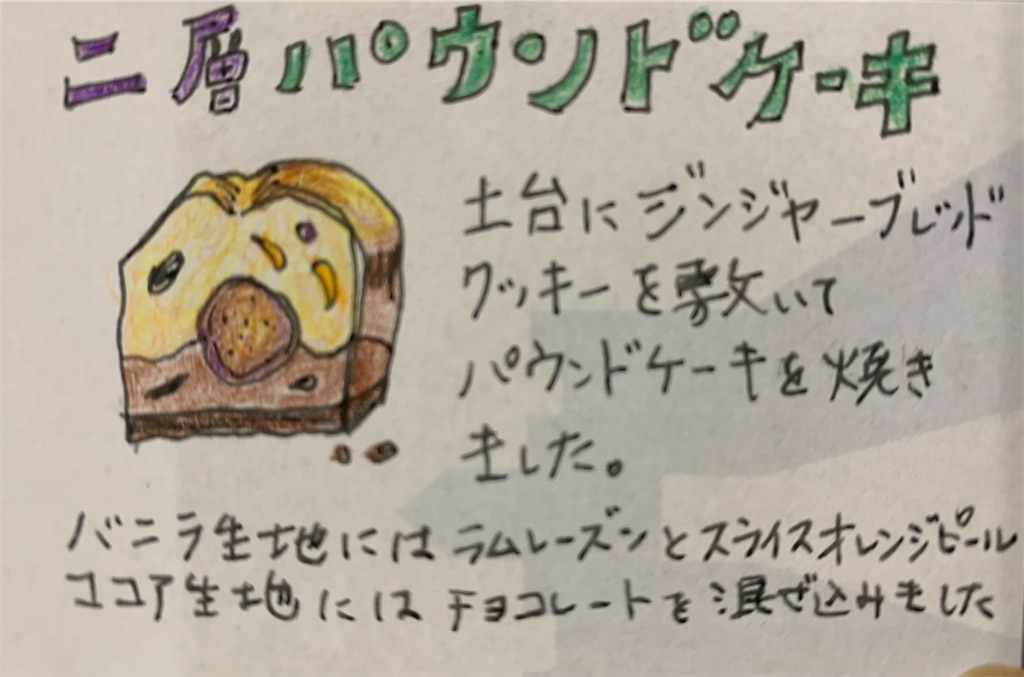 二層パウンドケーキ
土台にジンジャーブレッド
クッキーを敷いて
パウンドケーキを焼き
ました。
バニラ生地にはラムレーズンとスライスオレンジピール
ココア生地にはチョコレートを混ぜ込みました